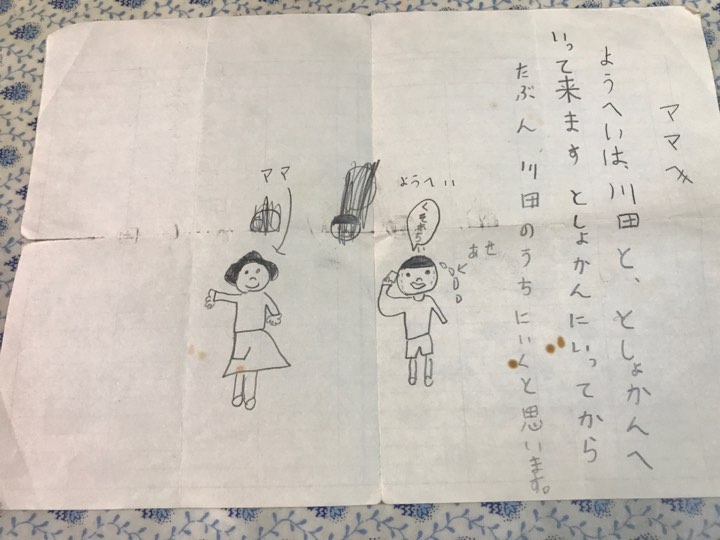 ママへ
ようへいは、川田と、としょかんへ
いって来ます としょかんにいってから
たぶん、川田のうちにいくと思います。
あせ
ようへい
ママ